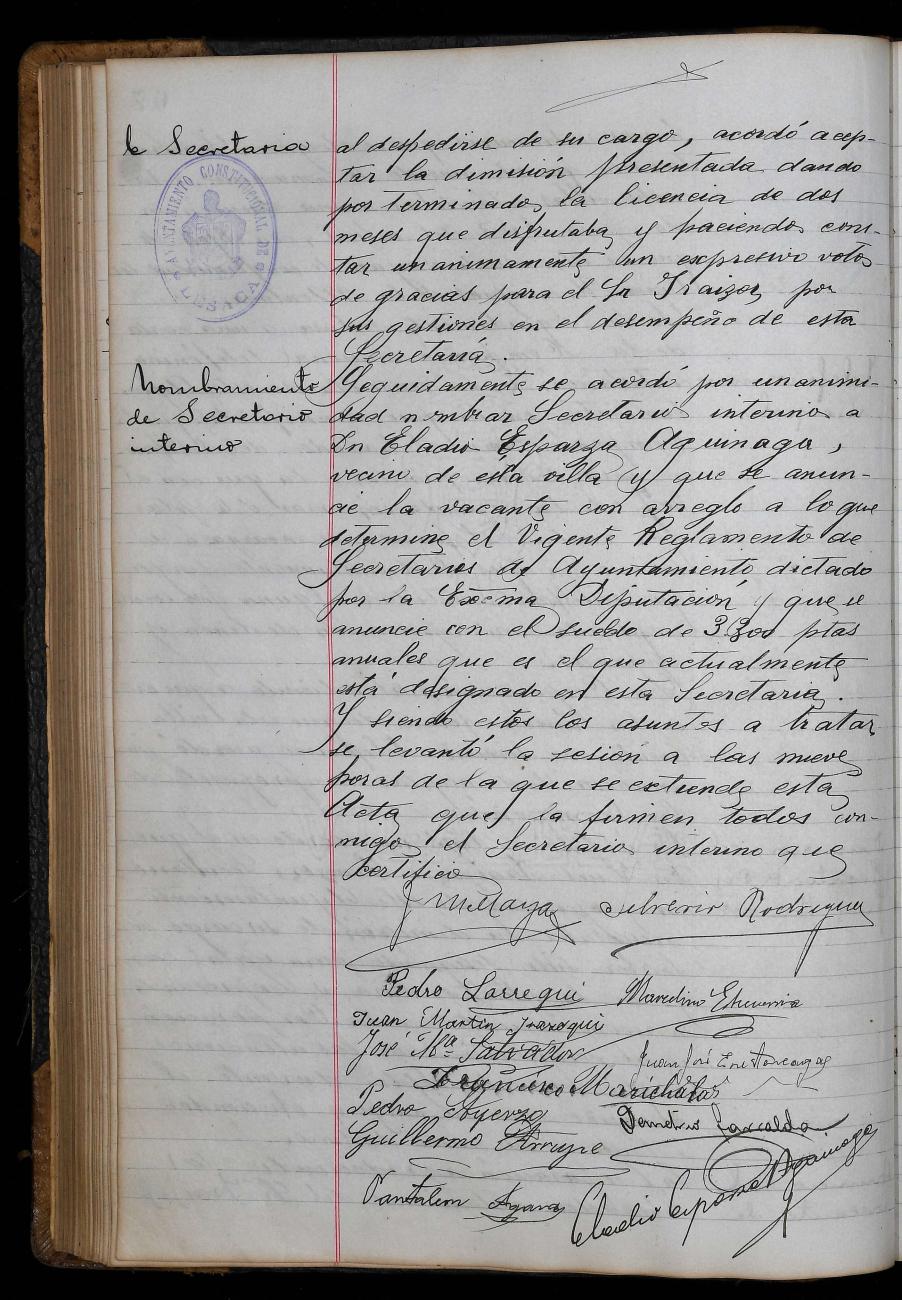 de Secretaria
AYUNTAMIENTO CONSTITUCIONAL DE
LESACA
al despedirse de su cargo, acordó acep-
tar la dimisión presentada dando
por terminado la licencia de dos
meses que disfrutaba y haciendo cons-
tar unanimamente un expresivo voto
de gracias para el Sr Iraizoz por
sus gestiones en el desempeño de esta
Secretaría.
Nombramiento
de Secretario
interino
Seguidamente se acordó por unanimi-
dad nombrar Secretario interino a
Dn Eladio Esparza Aguinaga,
vecino de esta villa y que se anun-
cie la vacante con arreglo a lo que
determine el Vigente Reglamento de
Secretarios de Ayuntamiento dictado
por la Excma Diputación y que se
anuncie con el sueldo de 3.300 ptas
anuales que es el que actualmente
está designado en esta Secretaria.
Y siendo estos los asuntos a tratar
se levantó la sesión a las nueve
horas de la que se extiende esta
Acta que la firmen todos con-
migo el Secretario interino que
certifico
Silverio Rodriguez
Pedro Larregui
Marcelino Echeverria
Juan Martin Irazoqui
José Mª Salvador
Juan José
Francisco Marichalar
Pedro Ayerza
Demetrio
Guillermo Arruye
Pantaleon
Eladio Esparza Aguinaga